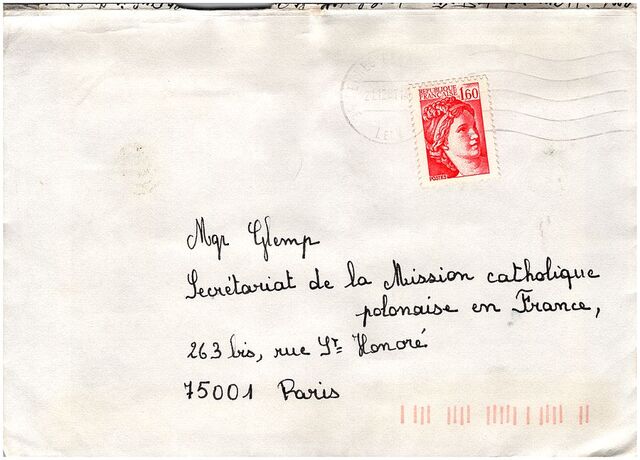 REPUBLIQUE
FRANCAISE 1,60
Mgr Glemp
Secrétariat de la Mission catholique
polonaise en France,
263 bis, rue St Honoré
75001 Paris